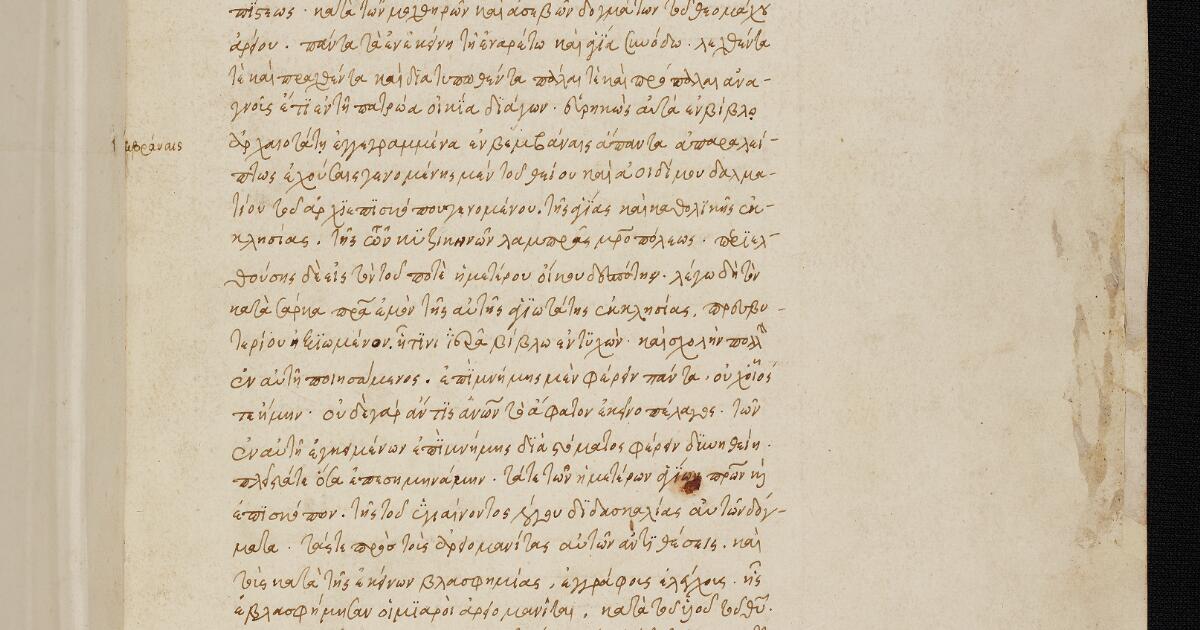 πίστεως · κατὰ τῶν μοχθηρῶν καὶ ἀσεβῶν δογμάτων τοῦ θεομάχου
ἀρείου · πάντα τὰ ἐν ἐκείνη τῆ ἐναρέτω καὶ ἁγία συνόδω · λεχθέντα
τὲ καὶ πραχθέντα καὶ διατυπωθέντα πάλαι τὲ καὶ πρόπαλαι ἀνα-
γνοὺς ἔτι ἐν τῆ πατρώα οἰκία διάγων · εὑρηκὼς αὐτὰ ἐν βίβλω
ἀρχαιοτάτη ἐγγεγραμμένα ἐν βεμβράναις ἅπαντα ἀπαραλεί-
πτως ἐχούσαις γενομένης μὲν τοῦ θείου καὶ ἀοιδίμου δαλμα-
τίου τοῦ ἀρχιεπισκόπου γενομένου · τῆς ἁγίας καὶ καθολικῆς ἐκ-
κλησίας · τῆς τῶν κυζικηνῶν λαμπρᾶς μροπόλεως · περιελ-
θούσης δὲ εἰς τὸν τοῦ ποτὲ ἡμετέρου οἴκου δεσπότην · λέγω δὴ τὸν
κατὰ σάρκα πρα ἐμὸν τῆς αὐτῆς ἁγιωτάτης ἐκκλησίας, πρεσβυ-
τερίου ἠξιωμένον. ἧτινι ἱερᾶ βίβλω ἐντυχὼν · καὶ σχολὴν πολλὴν
ἐν αὐτῆ ποιησάμενος · ἐπὶ μνήμης μὲν φέρειν πάντα, οὐχ οἷός
τε ἤμην · οὐδὲ γὰρ ἄν τις ἀνων τὸ ἄφατον ἐκεῖνο πέλαγος · τῶν
ἐν αὐτῆ ἐγκειμένων ἐπὶ μνήμης διὰ στόματος φέρειν δυνηθείη ·
πλεῖστα τε ὅσα ἐπεσημηνάμην · τά τε τῶν ἡμετέρων ἁγίων πρων καὶ
ἐπισκόπων · τῆς τοῦ ὑγιαίνοντος λόγου διδασκαλίας αὐτῶν δόγ-
ματα · τάς τε πρὸς τοὺς ἀρειομανίτας αὐτῶν ἀντιθέσεις · καὶ
τοὺς κατὰ τῆς ἐκείνων βλασφημίας, ἐγγράφους ἐλέγχους · ἧς
ἐβλασφήμησαν οἱ μιαροὶ ἀρειομανῖται, κατὰ τοῦ υἱοῦ τοῦ θυ ·
μβράναις